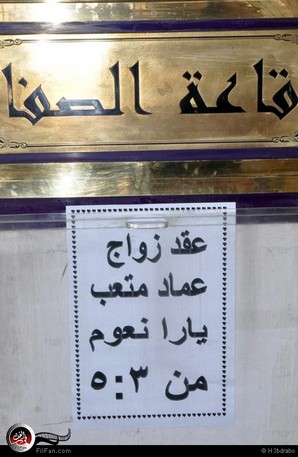 قاعة الصفا
عقد زواج
عماد متعب
يارا نعوم
من ٣:٥
FilFan.com
© H 3bdrabu